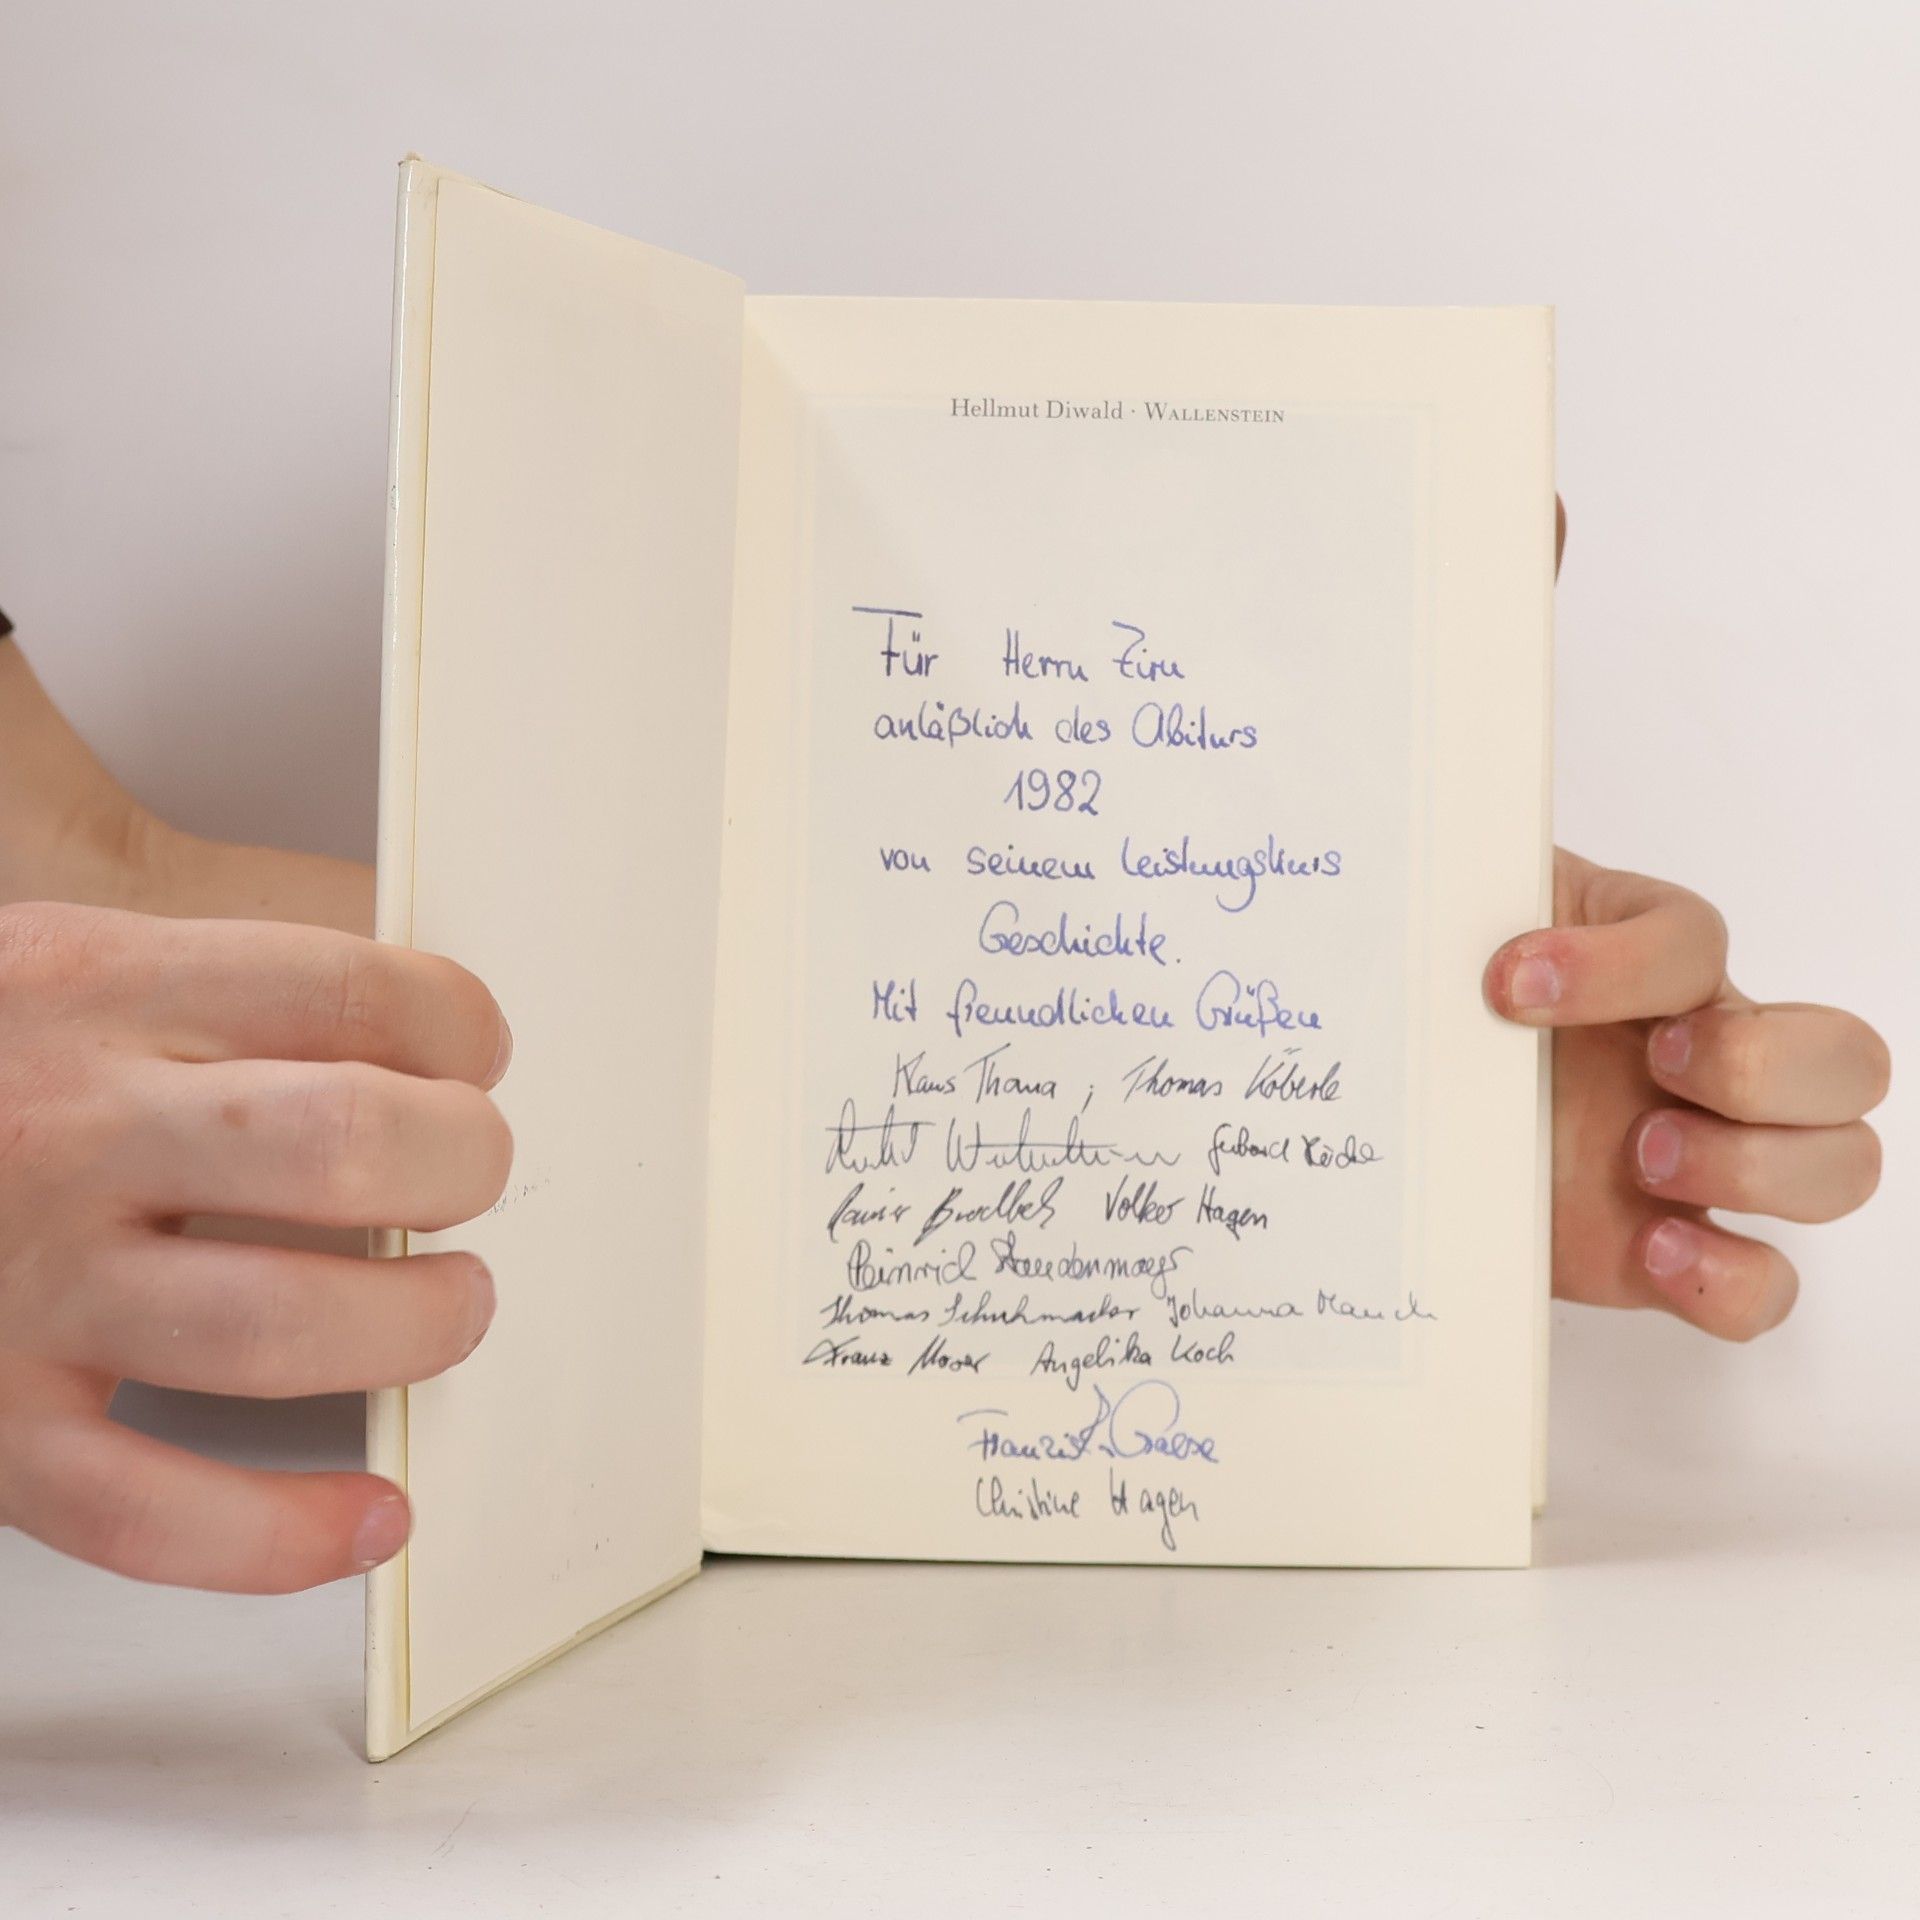 Hellmut Diwald · WALLENSTEIN
Für Herrn Zirn
anläßlich des Abiturs
1982
von seinem Leistungskurs
Geschichte.
Mit freundlichen Grüßen
Klaus Thoma ; Thomas Köberle
Rainer Brodbeck Volker Hagen
Heinrich Staudenmayer
Thomas Schuhmacher Johanna Mauch
Franz Moser Angelika Koch
Christine Hagen